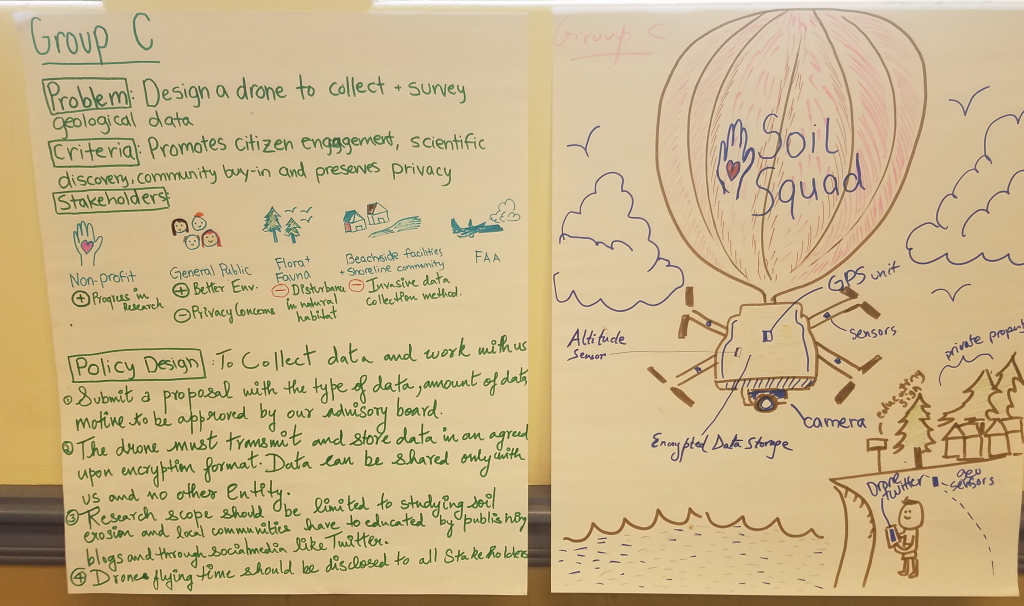 Group C
Problem: Design a drone to collect + survey
geological data
Criteria: Promotes citizen engagement, scientific
discovery, community buy-in and preserves privacy
Stakeholders
Non-profit
+ Progress in
research
General Public
+ Better Env.
- Privacy Concerns
Flora +
Fauna
- Disturbance
in natural
habitat
Beachside facilities
+ Shoreline community
- Invasive data
collection method.
FAA
Policy Design: To Collect data and work with us
① Submit a proposal with the type of data, amount of data,
motive to be approved by our advisory board.
② The drone must transmit and store data in an agreed
upon encryption format. Data can be shared only with
us and no other Entity.
③ Research scope should be limited to studying soil
erosion and local communities have to educated by publishing
blogs and through social media like Twitter.
④ Drones flying time should be disclosed to all Stakeholders
Group C
Soil
Squad
GPS unit
sensors
Altitude
Sensor
camera
Encrypted Data Storage
private property
educating
sign
Drone
twitter
geo
sensors